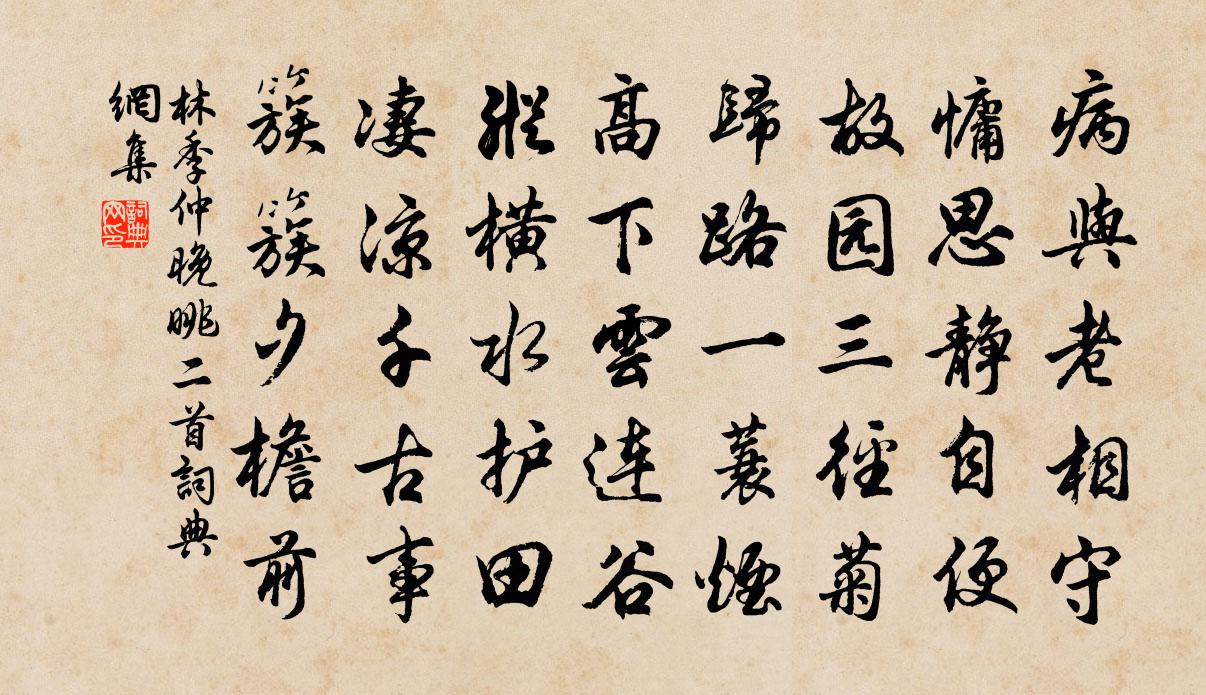 病與老相守
慵思静自便
故园三徑菊
歸路一蓑煙
高下雲连谷
縱橫水护田
凄涼千古事
簇簇夕檐前
林季仲晚眺二首詞典
網集
詞典
网印